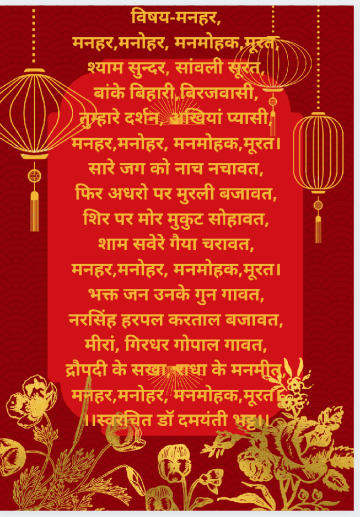 विषय-मनहर,
मनहर,मनोहर, मनमोहक,मूरत,
श्याम सुन्दर, सांवली सूरत,
बांके बिहारी,बिरजवासी,
तुम्हारे दर्शन, अखियां प्यासी,
मनहर,मनोहर, मनमोहक,मूरत।
सारे जग को नाच नचावत,
फिर अधरो पर मुरली बजावत,
शिर पर मोर मुकुट सोहावत,
शाम सवेरे गैया चरावत,
मनहर,मनोहर, मनमोहक,मूरत।
भक्त जन उनके गुन गावत,
नरसिंह हरपल करताल बजावत,
मीरां, गिरधर गोपाल गावत,
द्रौपदी के सखा, राधा के मनमीत,
मनहर,मनोहर, मनमोहक,मूरत।
।।स्वरचित डॉ दमयंती भट्ट।।